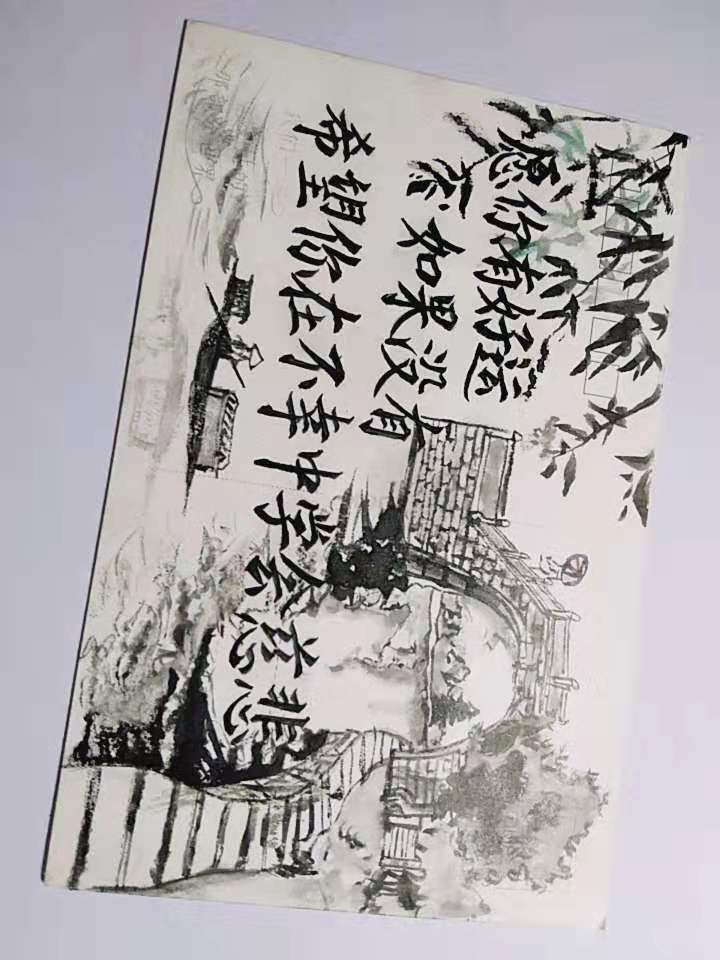 愿你有好运
气 如果没有
希望你在不幸中学会慈悲